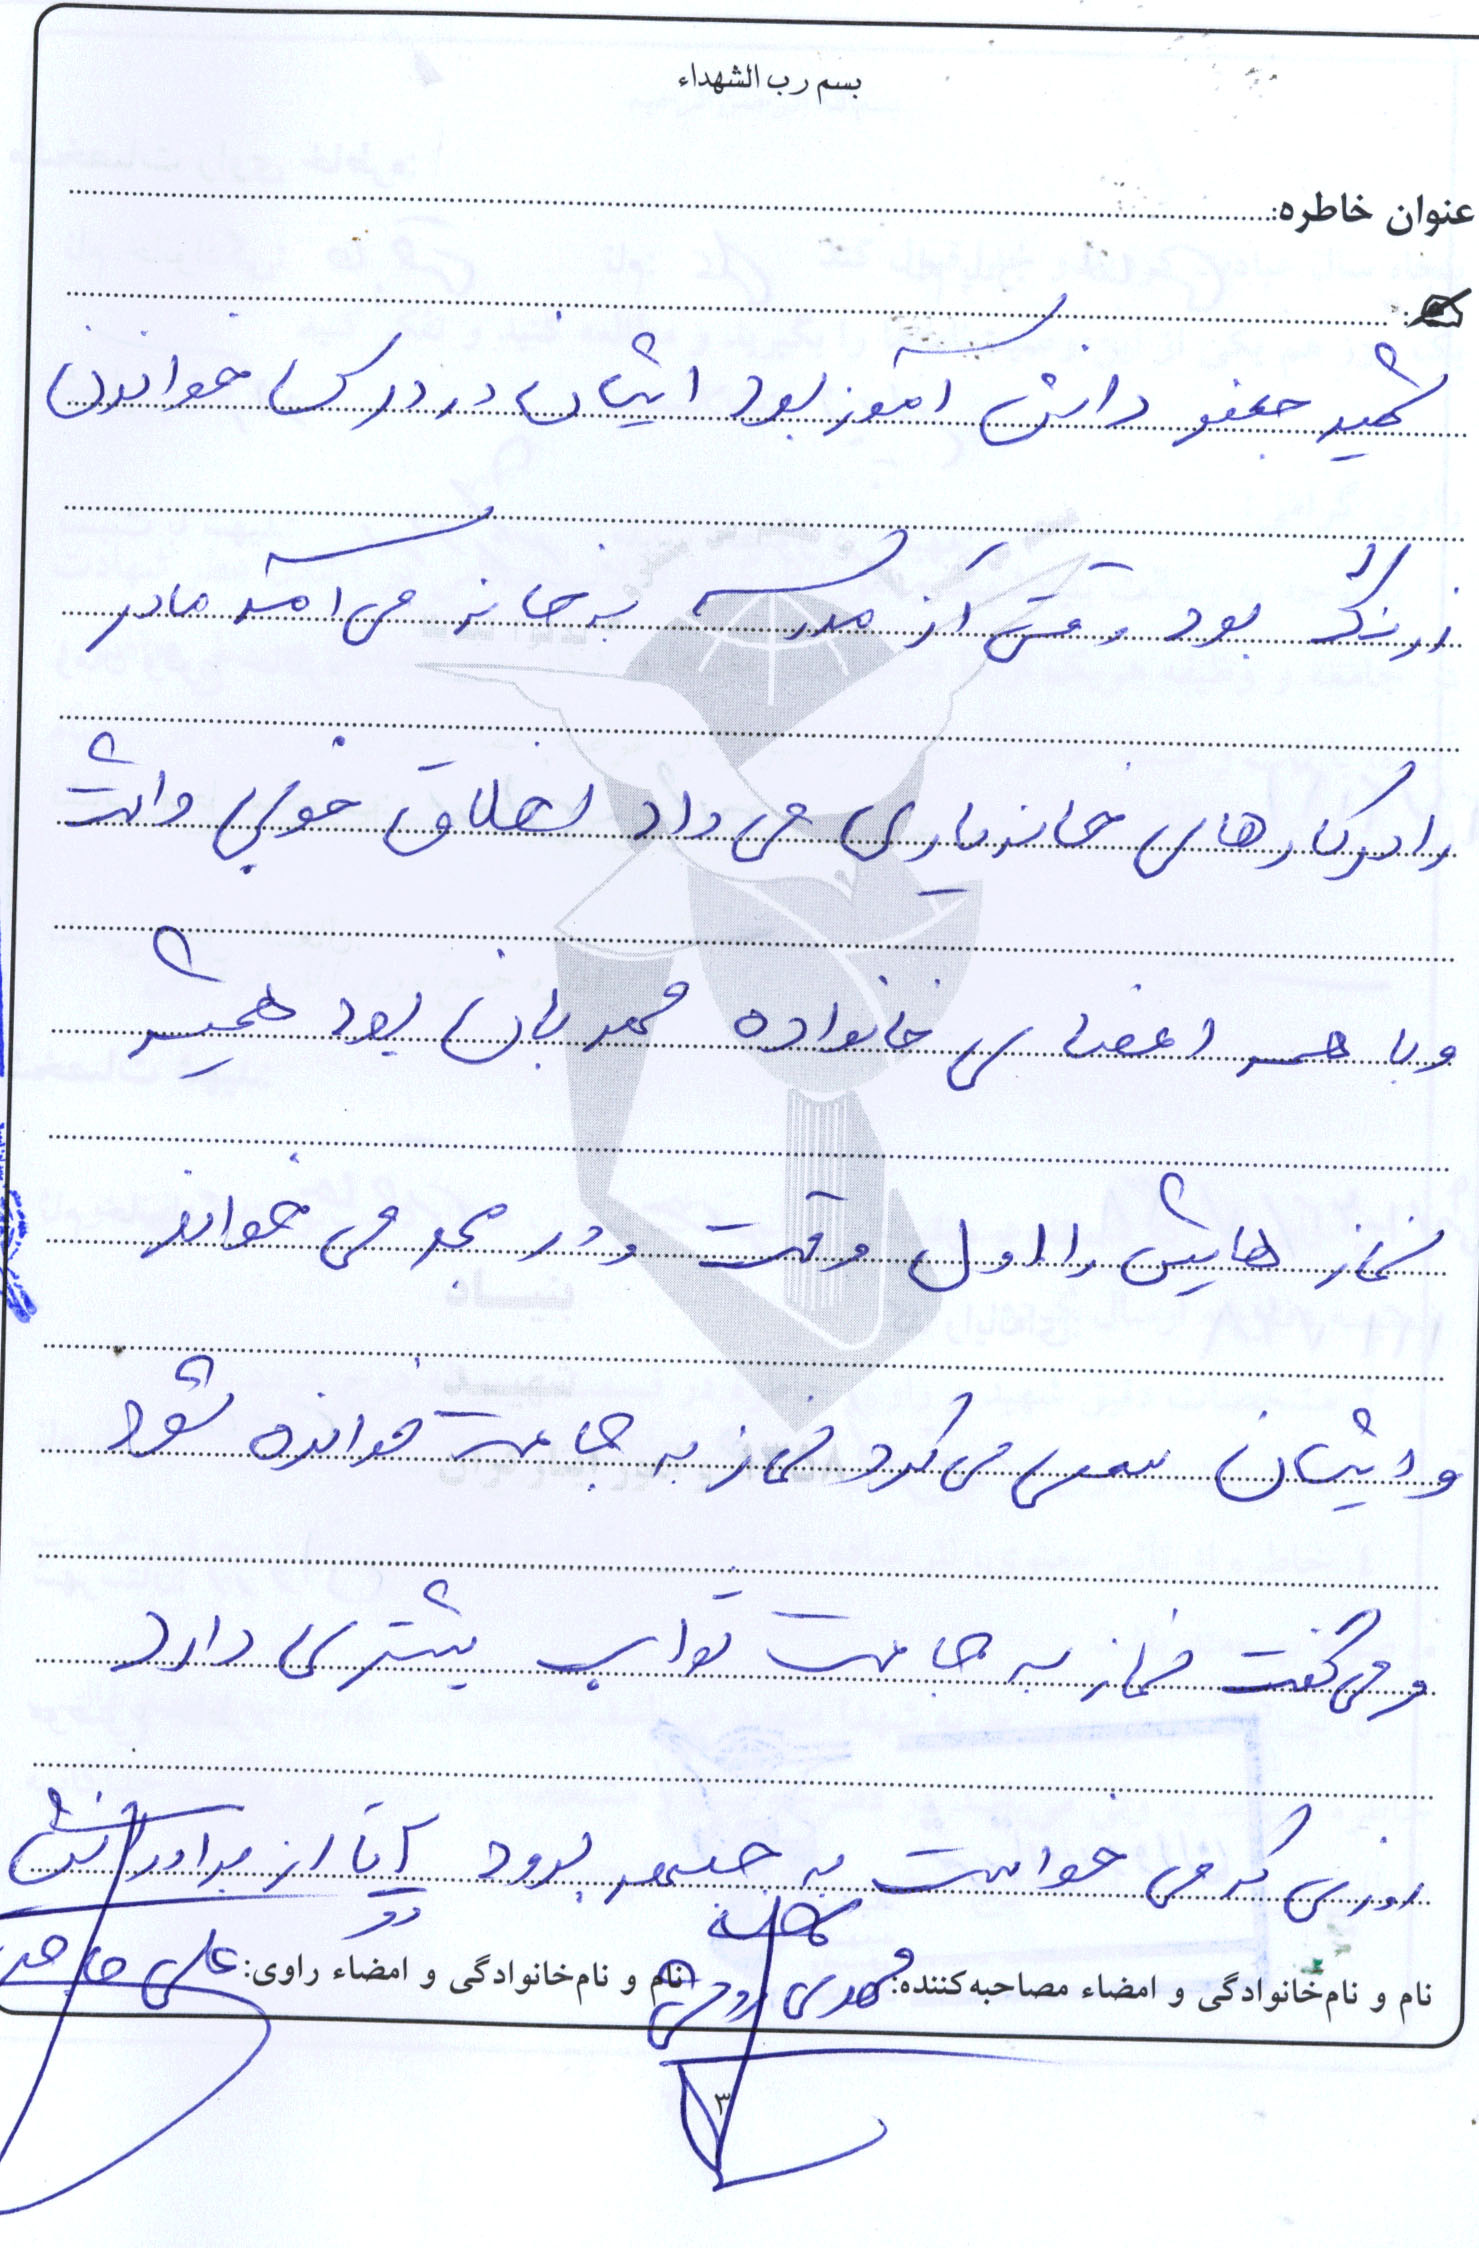 بسم رب الشهداء
عنوان خاطره:
شهید جعفر دانش آموز بود ایشان در درس خواندن
زرنگ بود وقتی از مدرسه به خانه می آمد مادر
را در کارهای خانه یاری می داد اخلاق خوبی داشت
و با همه اعضای خانواده مهربان بود همیشه
نماز هایش را اول وقت و در مسجد می خواند
و ایشان سعی می کرد نماز به جماعت خوانده شود
و می گفت نماز به جماعت ثواب بیشتری دارد
روزی که می خواست به جبهه برود دو تا از برادرانش
نام و نام‌خانوادگی و امضاء مصاحبه‌کننده: مهدی نام و نام‌خانوادگی و امضاء راوی: علی
۳